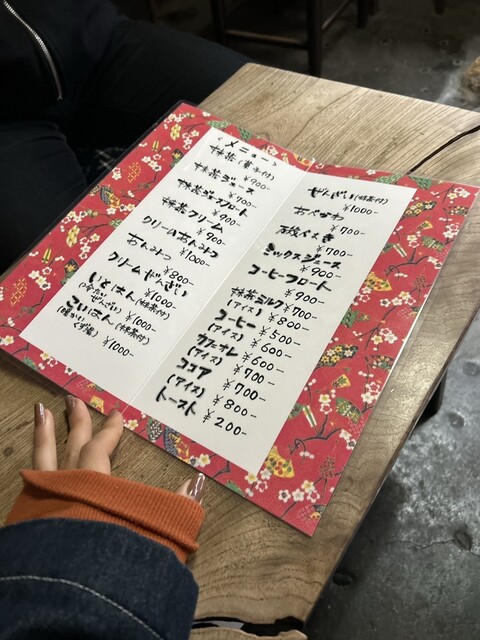 <メニュー>
抹茶(菓子付)
¥900-
抹茶ジュース
¥700-
抹茶ジュースフロート
¥900-
抹茶クリーム
¥900-
クリームあんみつ
¥1000-
あんみつ
¥800-
クリームぜんざい
¥1000-
いとはん(抹茶付)
ぜんざい) ¥1000-
こいはん(抹茶付)
(温かい
くず湯) ¥1000-
ぜんざい(抹茶付)
¥1000-
あべかわ
¥700-
磯べまき
¥700-
ミックスジュース
¥900-
コーヒーフロート
¥900-
抹茶ミルク ¥700-
(アイス) ¥800-
コーヒー ¥500-
(アイス) ¥600-
カフェオレ ¥600-
(アイス) ¥700-
ココア ¥700-
(アイス) ¥800-
トースト ¥200-